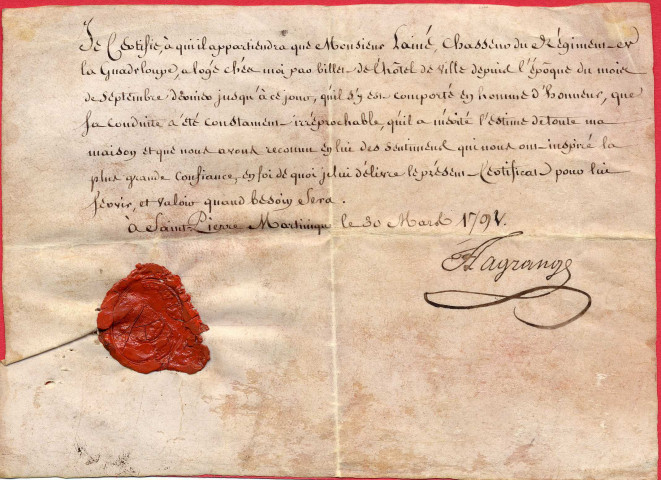 Je Certifie, à qui il appartiendra que Monsieur Lainé, Chasseur du Régiment de
la Guadeloupe, a logé chés moi par billet de l'hôtel de Ville depuis l'époque du mois
de Septembre dernier jusqu'à ce jour, qu'il s'y est comporté en homme d'honneur, que
sa conduite a été constament irréprochable, qu'il a mérité l'estime de toute ma
maison et que nous avons reconnu en lui des sentiments qui nous ont inspiré la
plus grande Confiance, en foi de quoi je lui délivre le présent Certificat pour lui
servir, et valoir quand besoin sera.
à Saint-Pierre Martinique le 30 Mars 179
Lagrange